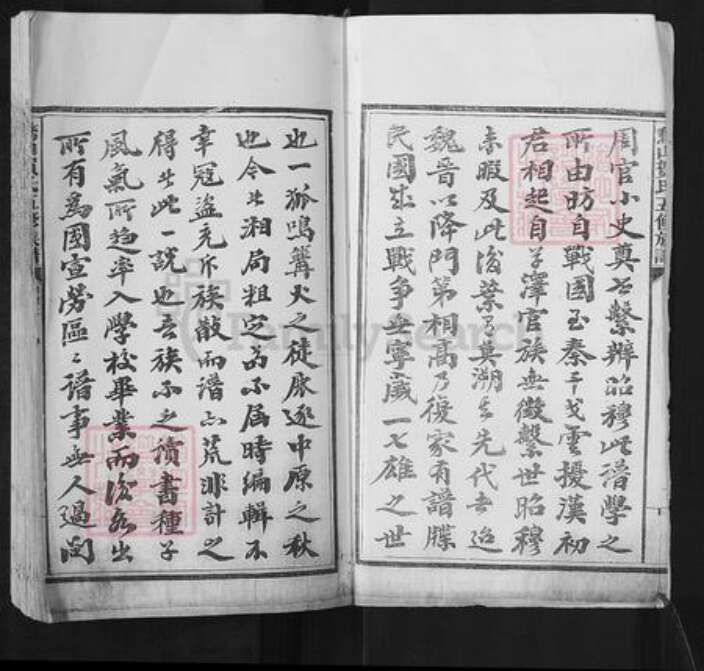 周官小史奠世繫辨昭穆此譜學之
所由昉自戰國至秦干戈雲擾漢初
君相起自草澤官族無徵繫世昭穆
未暇及此後葉莫溯其先代去迨
魏晋以降門第相高乃復家有譜牒
民國成立戰争無寧歲一七雄之世
也一狐鳴篝火之徒原逐中原之秋
也今其湘局粗定而不屆時編輯不
幸冠盜充斥族散而譜亦荒渺計之
得此一說也吾族不乏讀書種子
風氣所趨率入學校畢業而後各出
所有為國宣勞區區譜事無人過問
FamilySearch